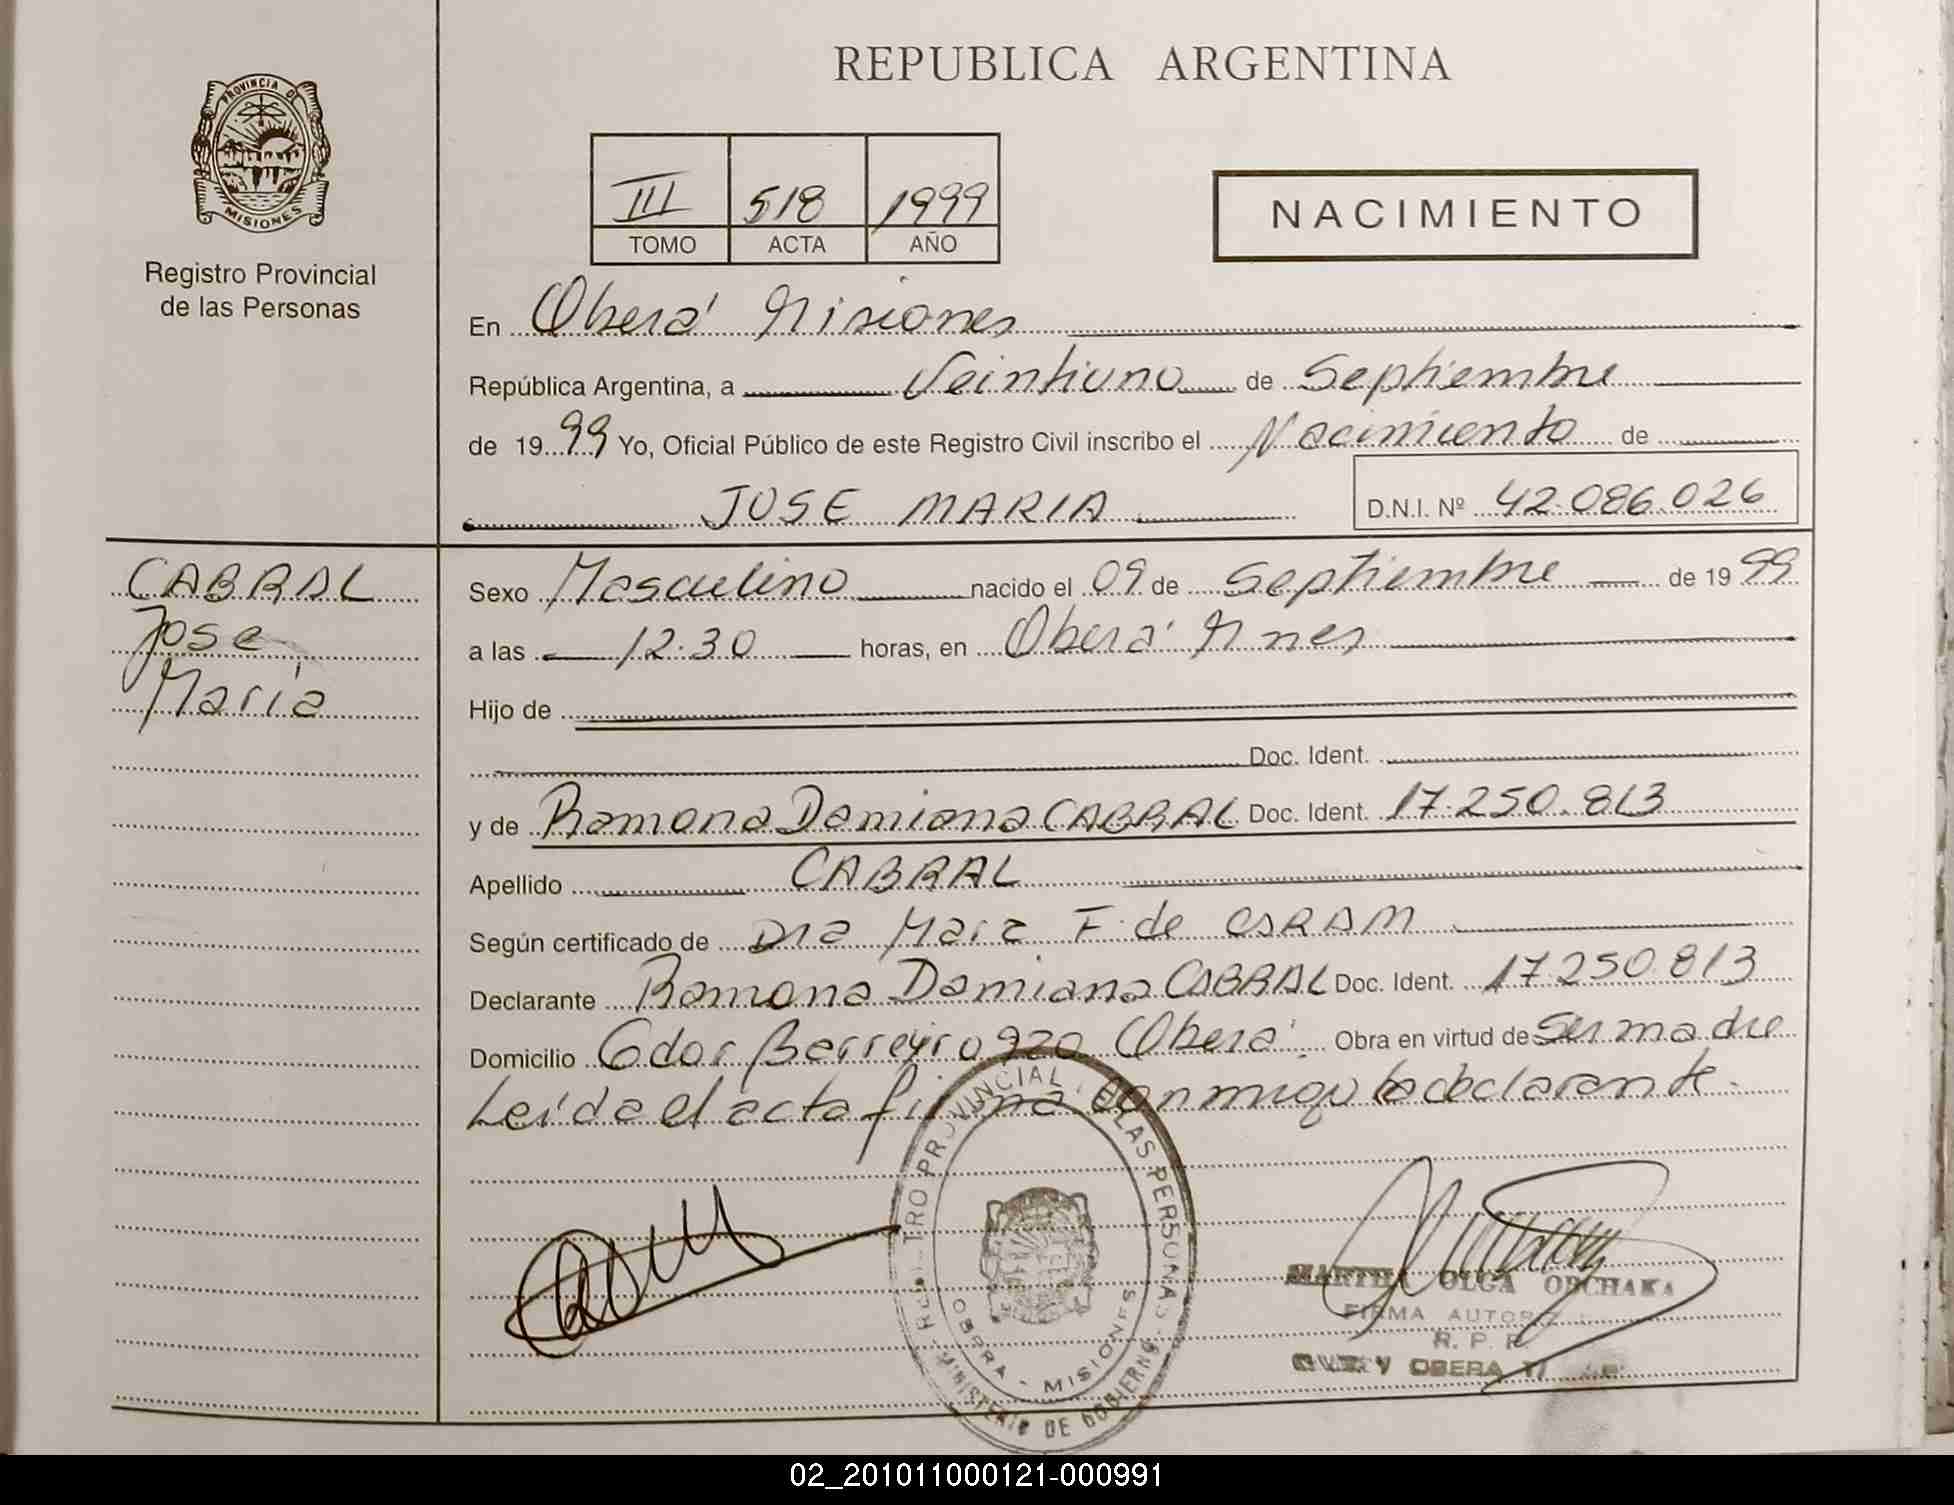 REPUBLICA ARGENTINA
PROVINCIA DE
MISIONES
Registro Provincial
de las Personas
III 518 1999
TOMO ACTA AÑO
NACIMIENTO
En Oberá Misiones
República Argentina, a Veintiuno de Septiembre
de 1999 Yo, Oficial Público de este Registro Civil inscribo el Nacimiento de
JOSE MARIA D.N.I. Nº 42.086.026
CABRAL
Jose
Maria
Sexo Masculino nacido el 09 de Septiembre de 1999
a las 12.30 horas, en Oberá Mnes
Hijo de
Doc. Ident.
y de Ramona Damiana CABRAL Doc. Ident. 17.250.813
Apellido CABRAL
Según certificado de Dra F. de
Declarante Ramona Damiana CABRAL Doc. Ident. 17.250.813
Domicilio Gdor Barreyro 920 Oberá. Obra en virtud de ser madre
Leída el acta firma conmigo la declarante.
REGISTRO PROVINCIAL DE LAS PERSONAS
OBERA - MISIONES
MINISTERIO DE GOBIERNO
MARTHA OLGA OBCHAKA
FIRMA
R. P. P.
OBERA
02_201011000121-000991